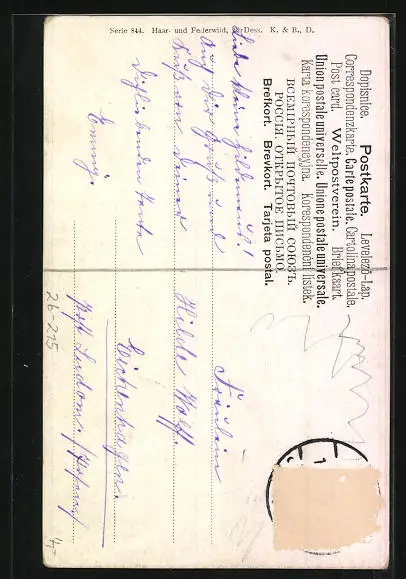 Serie 844. Haar- und Federwild, K. & B., D.
Dopisnice. Postkarte. Levelező-Lap.
Correspondenzkarte. Carte postale. Cartolina postale.
Post card. Weltpostverein. Briefkaart.
Union postale universelle. Unione postale universale.
Karta korespondencyjna. Korespondenční lístek.
ВСЕМІРНЫЙ ПОЧТОВЫЙ СОЮЗЪ.
РОССІЯ. ОТКРЫТОЕ ПИСЬМО.
Brefkort. Brevkort. Tarjeta postal.
Liebe kleine
Gruß und
Kuß von Deiner
Dich liebenden Tante
Fräulein
Hilde Wolff.
Eichenhagen.
Post Ludom.
26-215
4,-